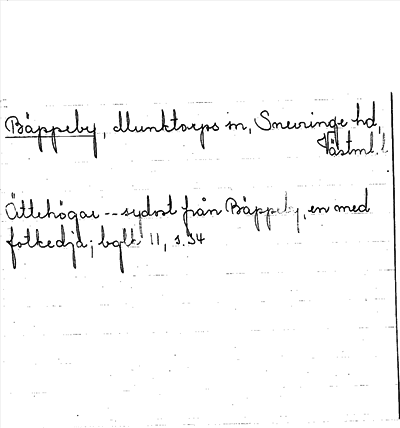 Bäppeby, Munktorps sn, Snevringe hd,
Västml. l.
Ättehögar -- sydost från Bäppeby, en med
fotkedja; bglt 11, s.34